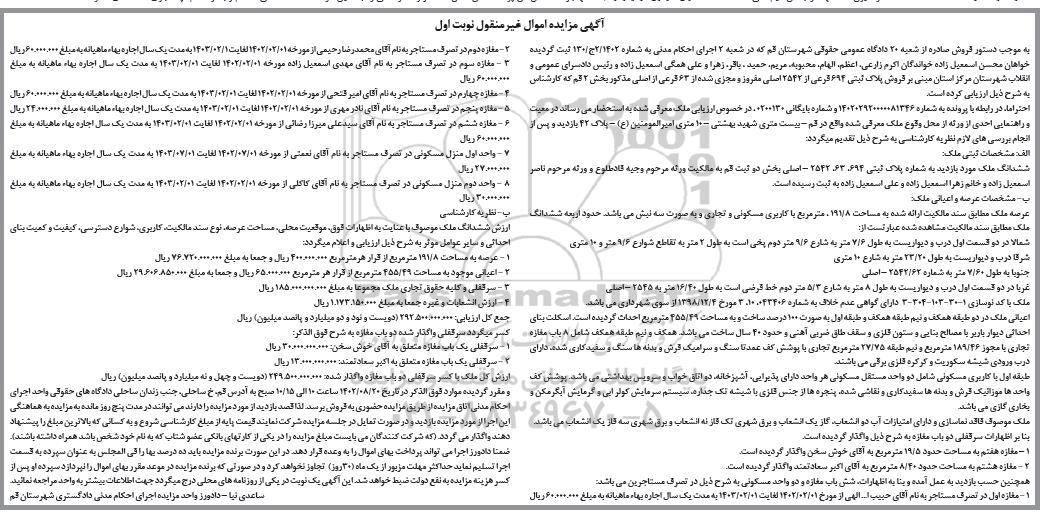 آگهی مزایده اموال غیرمنقول نوبت اول
به موجب دستور فروش صادره از شعبه ۲۰ دادگاه عمومی حقوقی شهرستان قم که در شعبه ۲ اجرای احکام مدنی به شماره ۱۴۰۲/ج۱۳۰/۲ ثبت گردیده
خواهان محسن اسمعیل زاده خواندگان اکرم زارعی، اعظم، الهام، محبوبه، مریم، حمید، باقر، زهرا و علی همگی اسمعیل زاده و رئیس دادسرای عمومی و
انقلاب شهرستان مرکز استان مبنی بر فروش پلاک ثبتی ۶۹۴ فرعی از ۲۵۴۲ اصلی مفروز و مجزی شده از ۶۳ فرعی از اصلی مذکور بخش ۲ قم که کارشناس
به شرح ذیل ارزیابی کرده است.
احتراما، در رابطه با پرونده به شماره ۱۴۰۲۰۲۹۲۰۰۰۰۰۸۱۳۴۶ و شماره بایگانی ۰۲۰۰۱۳۰، در خصوص ارزیابی ملک معرفی شده به استحضار می رساند در معیت
و راهنمایی احدی از ورثه از محل وقوع ملک معرفی شده واقع در قم –بیست متری شهید بهشتی –۱۰ متری امیرالمومنین (ع) –پلاک ۴۲ بازدید و پس از
انجام بررسی های لازم نظریه کارشناسی به شرح ذیل تقدیم میگردد:
الف: مشخصات ثبتی ملک:
ششدانگ ملک مورد بازدید به شماره پلاک ثبتی ۶۹۴، ۶۳، ۲۵۴۲ –اصلی بخش دو ثبت قم به مالکیت ورثه مرحوم وجیه قادطلوع و ورثه مرحوم ناصر
اسمعیل زاده و خانم زهرا اسمعیل زاده و علی اسمعیل زاده به ثبت رسیده است.
ب- مشخصات عرصه و اعیانی ملک:
عرصه ملک مطابق سند مالکیت ارائه شده به مساحت ۱۹۱/۸، مترمربع با کاربری مسکونی و تجاری و به صورت سه نبش می باشد. حدود اربعه ششدانگ
ملک مطابق سند مالکیت مشاهده شده عبارتست از:
شمالا در دو قسمت اول درب و دیواریست به طول ۷/۶ متر به شارع ۹/۶ متر دوم پخی است به طول ۲ متر به تقاطع شوارع ۹/۶ متر و ۱۰ متری
شرقا درب و دیواریست به طول ۲۳/۲۰ متر به شارع ۱۰ متری
جنوبا به طول ۷/۶۰ متر به شماره ۲۵۴۲/۶۲ –اصلی
غربا در دو قسمت اول درب و دیواریست به طول ۸ متر به شارع ۵/۳ متر دوم خط فرضی است به طول ۱۶/۴۰ متر به ۲۵۴۵ –اصلی
ملک با کد نوسازی ۱-۳۰-۱۰۳-۳۰۴-۳ دارای گواهی عدم خلاف به شماره ۱۰،۰۴۳۴۰۶، ۳ مورخ ۱۳۹۸/۱۲/۴ از سوی شهرداری می باشد.
اعیانی ملک در دو طبقه همکف و نیم طبقه همکف و طبقه اول به صورت ۱۰۰ درصد ساخت و به مساحت ۴۵۵/۴۹ مترمربع احداث گردیده است. اسکلت بنای
احداثی دیوار باربر با مصالح بنایی و ستون فلزی و سقف طاق ضربی آهنی و حدود ۴۰ سال ساخت می باشد. همکف و نیم طبقه همکف شامل ۸ باب مغازه
تجاری با مجوز ۱۸۹/۴۶ مترمربع و نیم طبقه ۲۷/۷۵ مترمربع تجاری با پوشش کف عمدتا سنگ و سرامیک قرش و بدنه ها سنگ و سفیدکاری شده، دارای
درب ورودی شیشه سکوریت و کرکره فلزی برقی می باشند.
طبقه اول با کاربری مسکونی شامل دو واحد مستقل مسکونی هر واحد دارای پذیرایی، آشپزخانه، دو اتاق خواب و سرویس بهداشتی می باشد. پوشش کف
واحد ها موزاییک فرش و بدنه ها سفیدکاری و نقاشی شده، پنجره ها از جنس فلزی با شیشه تک جداره، سیستم سرمایش کولر آبی و گرمایش آبگرمکن و
بخاری گازی می باشد.
ملک موصوف فاقد نماسازی و دارای امتیازات آب دو انشعاب، گاز یک انشعاب و برق شهری تک فاز نه انشعاب و برق شهری سه فاز یک انشعاب می باشد.
بنا بر اظهارات سرقفلی دو باب مغازه به شرح ذیل واگذار گردیده است.
۱ –مغازه هفتم به مساحت حدود ۱۹/۵ مترمربع به آقای خوش سخن واگذار گردیده است.
۲ - مغازه هشتم به مساحت حدود ۸/۴۰ مترمربع به آقای اکبر سعادتمند واگذار گردیده است.
همچنین حسب بازدید به عمل آمده و بنا به اظهارات، شش باب مغازه و دو واحد مسکونی به شرح ذیل در تصرف مستاجرین می باشد:
۱ - مغازه اول در تصرف مستاجر به نام آقای حبیب ا... الهی از مورخ ۱۴۰۲/۰۲/۰۱ لغایت ۱۴۰۳/۰۲/۰۱ به مدت یک سال اجاره بهاء ماهیانه به مبلغ ۶۰.۰۰۰.۰۰۰ ریال
۲-مغازه دوم در تصرف مستاجر به نام آقای محمدرضا رحیمی از مورخه ۱۴۰۲/۰۲/۰۱ لغایت ۱۴۰۳/۰۲/۱ به مدت یک سال اجاره بهاء ماهیانه به مبلغ ۶۰.۰۰۰.۰۰۰ ریال
۳ - مغازه سوم در تصرف مستاجر به نام آقای مهدی اسمعیل زاده مورخه ۱۴۰۲/۰۲/۰۱ لغایت ۱۴۰۳/۰۲/۰۱ به مدت یک سال اجاره بهاء ماهیانه به مبلغ
۶۰.۰۰۰.۰۰۰ ریال
۴ - مغازه چهارم در تصرف مستاجر به نام آقای امیر فتحی از مورخه ۱۴۰۲/۰۲/۰۱ لغایت ۱۴۰۳/۰۲/۰۱ به مدت یک سال اجاره بهاء ماهیانه به مبلغ ۶۰.۰۰۰.۰۰۰ ریال
۵- مغازه پنجم در تصرف مستاجر به نام آقای نادر مهری از مورخه ۱۴۰۲/۰۲/۰۱ لغایت ۱۴۰۳/۰۲/۰۱ به مدت یک سال اجاره بهاء ماهیانه به مبلغ ۲۴.۰۰۰.۰۰۰ ریال
۶ - مغازه ششم در تصرف مستاجر به نام آقای سیدعلی میرزا رضائی از مورخه ۱۴۰۲/۰۲/۰۱ لغایت ۱۴۰۳/۰۲/۰۱ به مدت یک سال اجاره بهاء ماهیانه به مبلغ
۶۰.۰۰۰.۰۰۰ ریال
۷ - واحد اول منزل مسکونی در تصرف مستاجر به نام آقای نعمتی از مورخه ۱۴۰۲/۰۷/۰۱ لغایت ۱۴۰۳/۰۷/۰۱ به مدت یک سال اجاره بهاء ماهیانه به مبلغ
۲۷.۰۰۰.۰۰۰ ریال
۸ - واحد دوم منزل مسکونی در تصرف مستاجر به نام آقای کاکلی از مورخه ۱۴۰۲/۰۲/۰۱ لغایت ۱۴۰۳/۰۲/۰۱ به مدت یک سال اجاره بهاء ماهیانه به مبلغ
۳۰.۰۰۰.۰۰۰ ریال
ب- نظریه کارشناسی
ارزش ششدانگ ملک موصوف با عنایت به اظهارات فوق، موقعیت محلی، مساحت عرصه، نوع سند مالکیت، کاربری، شوارع دسترسی، کیفیت و کمیت بنای
احداثی و سایر عوامل موثر به شرح ذیل ارزیابی و اعلام میگردد:
۱ - عرصه به مساحت ۱۹۱/۸ مترمربع از قرار هر مترمربع ۴۰۰.۰۰۰.۰۰۰ ریال و جمعا به مبلغ ۷۶.۷۲۰.۰۰۰.۰۰۰ ریال
۲ - اعیانی موجود به مساحت ۴۵۵/۴۹ مترمربع از قرار هر مترمربع ۶۵.۰۰۰.۰۰۰ ریال و جمعا به مبلغ ۲۹.۶۰۶.۸۵۰.۰۰۰ ریال
۳ - سرقفلی و کلیه حقوق تجاری ملک مجموعا به مبلغ ۱۸۵.۰۰۰.۰۰۰.۰۰۰ ریال
۴ - ارزش انشعابات و غیره جمعا به مبلغ ۱.۱۷۳.۱۵۰.۰۰۰ ریال
جمع کل ارزیابی: ۲۹۲.۵۰۰.۰۰۰.۰۰۰ (دویست و نود و دو میلیارد و پانصد میلیون) ریال
کسر میگردد سرقفلی واگذار شده دو باب مغازه به شرح فوق الذکر:
۱ - سرقفلی یک باب مغازه متعلق به آقای خوش سخن: ۳۰.۰۰۰.۰۰۰.۰۰۰ ریال
۲ - سرقفلی یک باب مغازه متعلق به اکبر سعادتمند: ۱۳.۰۰۰.۰۰۰.۰۰۰ ریال
ارزش کل ملک با کسر سرقفلی دو باب مغازه واگذار شده: ۲۴۹.۵۰۰.۰۰۰.۰۰۰ (دویست و چهل و نه میلیارد و پانصد میلیون) ریال
و مقرر گردیده موارد فوق الذکر در تاریخ ۱۴۰۲/۰۸/۲۰ ساعت ۱۰ الی ۱۰/۱۵ صبح به آدرس قم، خ ساحلی، جنب زندان ساحلی دادگاه های حقوقی واحد اجرای
احکام مدنی اتاق مزایده از طریق مزایده حضوری به فروش برسد. لذا قصد بازدید از مورد مزایده را دارند می توانند در مدت پنج روز مانده به مزایده به هماهنگی
این اجرا از مورد مزایده بازدید و در صورت تمایل در جلسه مزایده شرکت نمایند قیمت پایه از مبلغ کارشناسی شروع و به کسانی که بالاترین مبلغ را پیشنهاد
دهند واگذار می گردد. (که شرکت کنندگان می بایست مبلغ مزایده را در یکی از کارتهای بانکی عضو شتاب که به نام خود شخص باشد همراه داشته باشند).
ضمنا دادورز اجرا می تواند پرداخت بهای اموال را به وعده قرار دهد. در این صورت برنده مزایده باید ده درصد بها را فی المجلس به عنوان سپرده به قسمت
اجرا تسلیم نماید حداکثر مهلت مزبور از یک ماه (۳۰روز) تجاوز نخواهد کرد و در صورتی که برنده مزایده در موعد مقرر بهای اموال را نپردازد سپرده او پس از
کسر هزینه مزایده به نفع دولت ضبط خواهد شد. این آگهی یک نوبت در یکی از روزنامه های محلی درج میگردد جهت اطلاعات بیشتر به واحد مراجعه نمائید.
ساعدی نیا –دادورز واحد مزایده اجرای احکام مدنی دادگستری شهرستان قم
۰۲۱-۸۸۳۴۹۶۷۰-۵